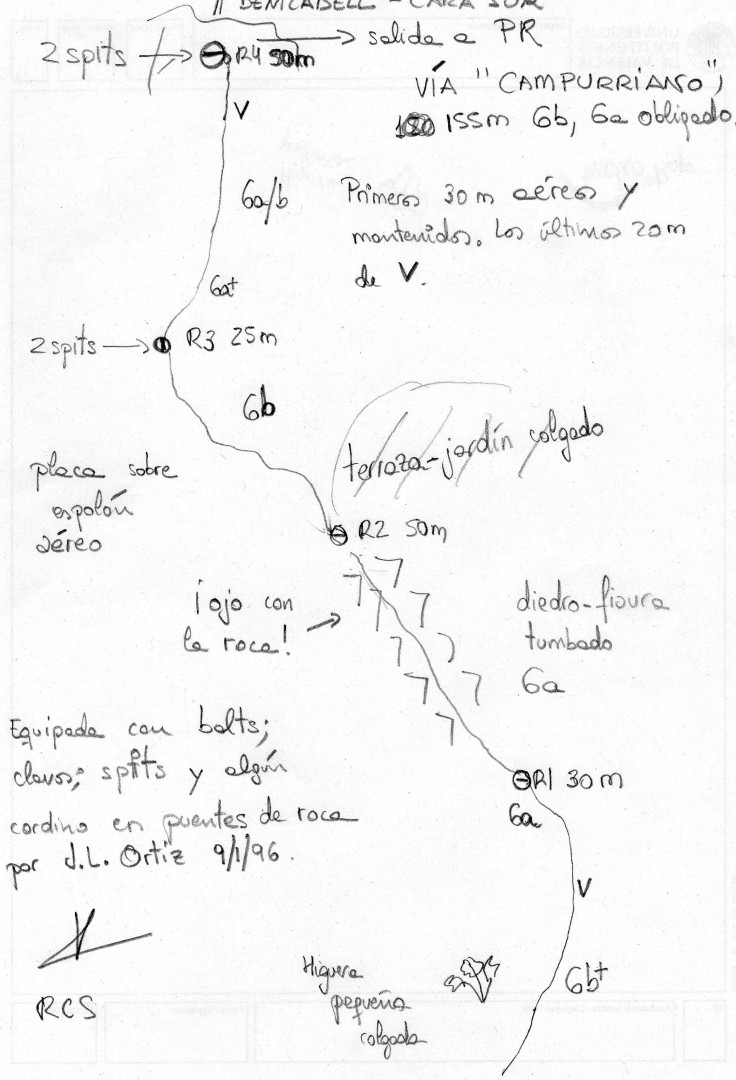 BENICADELL - CARA SUR
2 spits
R4 50m
salida a PR
V
VÍA "CAMPURRIANO",
155m 6b, 6a obligado.
6a/b
Primeros 30 m aéreos y
mantenidos. Los últimos 20m
de V.
6a+
2 spits
R3 25m
6b
terraza-jardín colgado
placa sobre
espolón
aéreo
R2 50m
¡ojo con
la roca!
diedro-fisura
tumbado
6a
Equipada con bolts;
clavos; spits y algún
cordino en puentes de roca
por J.L. Ortiz 9/1/96.
R1 30m
6a
V
6b+
Higuera
pequeña
colgada
RCS
UNIVERSIDAD
POLITECNICA
DE VALENCIA